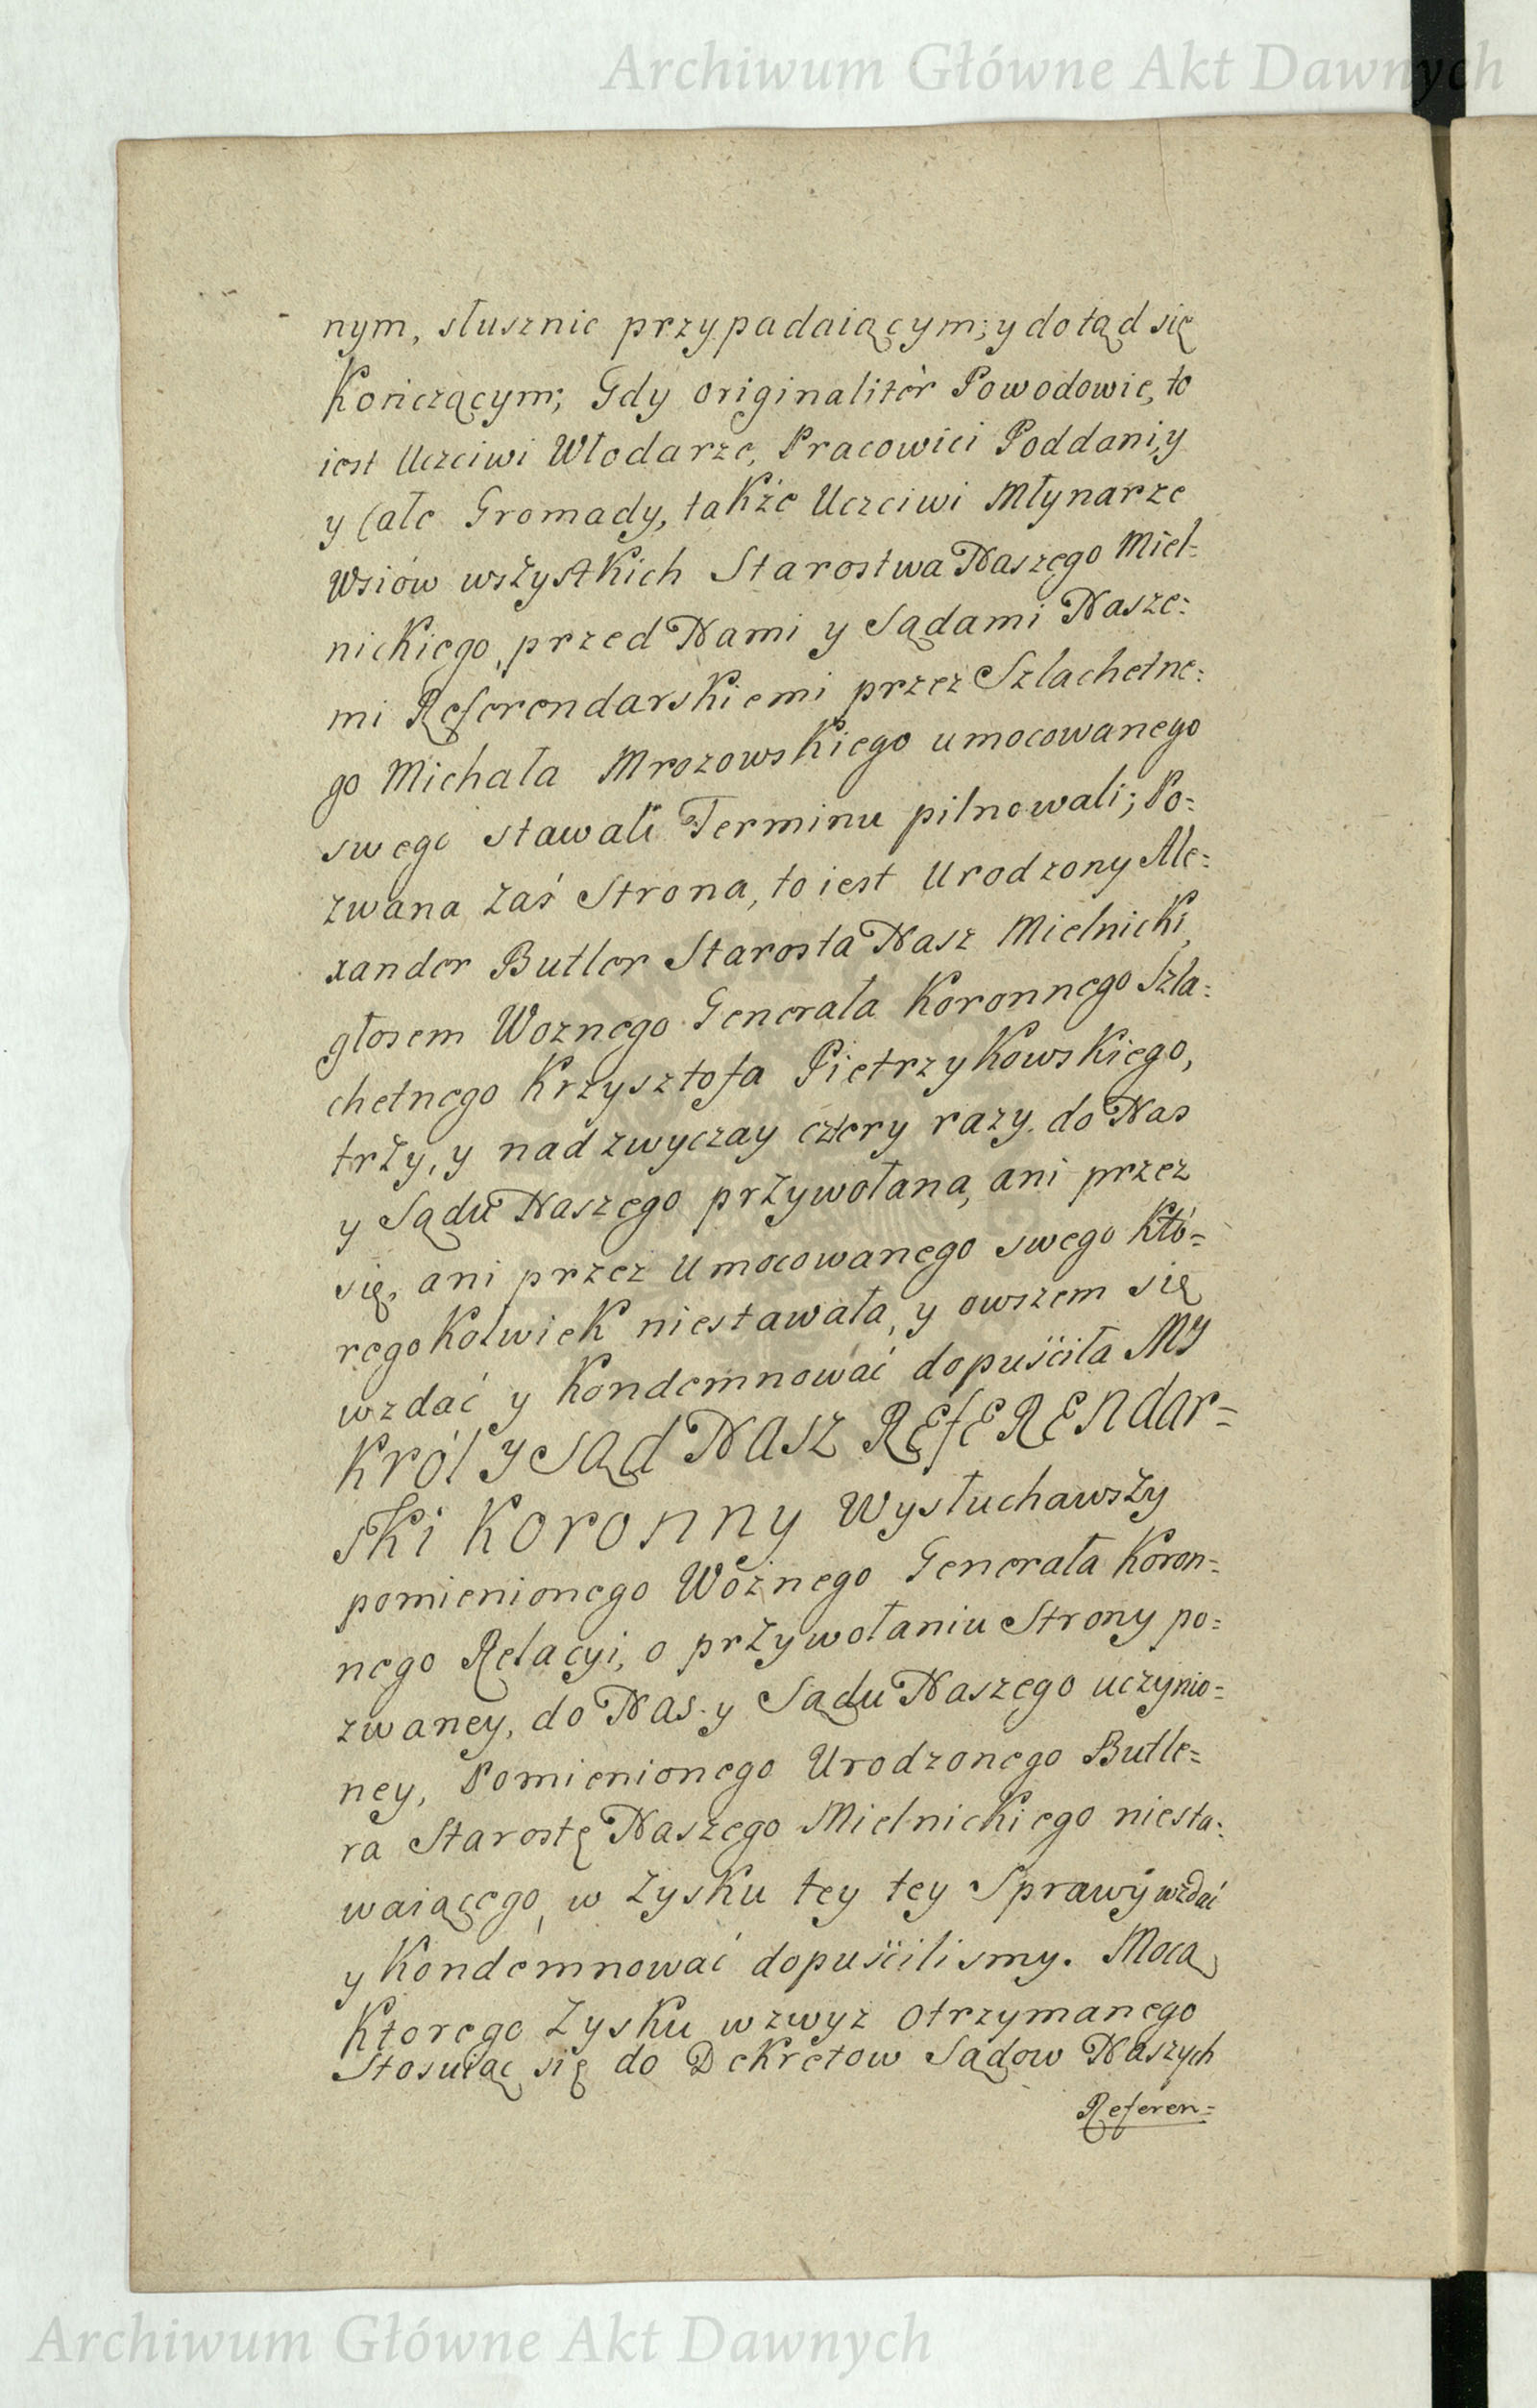 Archiwum Główne Akt Dawnych
nym, słusznie przypadaiącym; y dotąd się
Kończącym; Gdy originalitèr Powodowie, to
iest Uczciwi Włodarze, Pracowici Poddani, y
y Całe Gromady, także Uczciwi Młynarze
Wsiów wszystkich Starostwa Naszego Miel=
nickiego, przed Nami y Sądami Nasze=
mi Referendarskiemi przez Szlachetne=
go Michała Mrozowskiego umocowanego
swego stawali Terminu pilnowali; Po=
zwana zaś Strona, to iest Urodzony Ale=
xander Butler Starosta Nasz Mielnicki,
głosem Woznego Generała Koronnego Szla=
chetnego Krzysztofa Pietrzykowskiego,
trży, y nad zwyczay cztery razy do Nas
y Sądu Naszego przywołana, ani przez
się, ani przez Umocowanego swego Któ=
regokolwiek niestawała, y owszem się
wzdać y Kondemnować dopuściła MY
Król y Sąd Nasz Referendar=
ski Koronny Wysłuchawszy
pomienionego Woźnego Generała Koron=
nego Relacyi, o przywołaniu Strony po=
zwaney, do Nas y Sądu Naszego uczynio=
ney, Pomienionego Urodzonego Butle=
ra Starostę Naszego Mielnickiego niesta=
waiącego, w zysku tey tey Sprawy wzdać
y Kondemnować dopuścilismy. Mocą
Ktorego Zysku wzwyz otrzymanego
Stosuiąc się do Dekretow Sądow Naszych
Referen=
Archiwum Główne Akt Dawnych